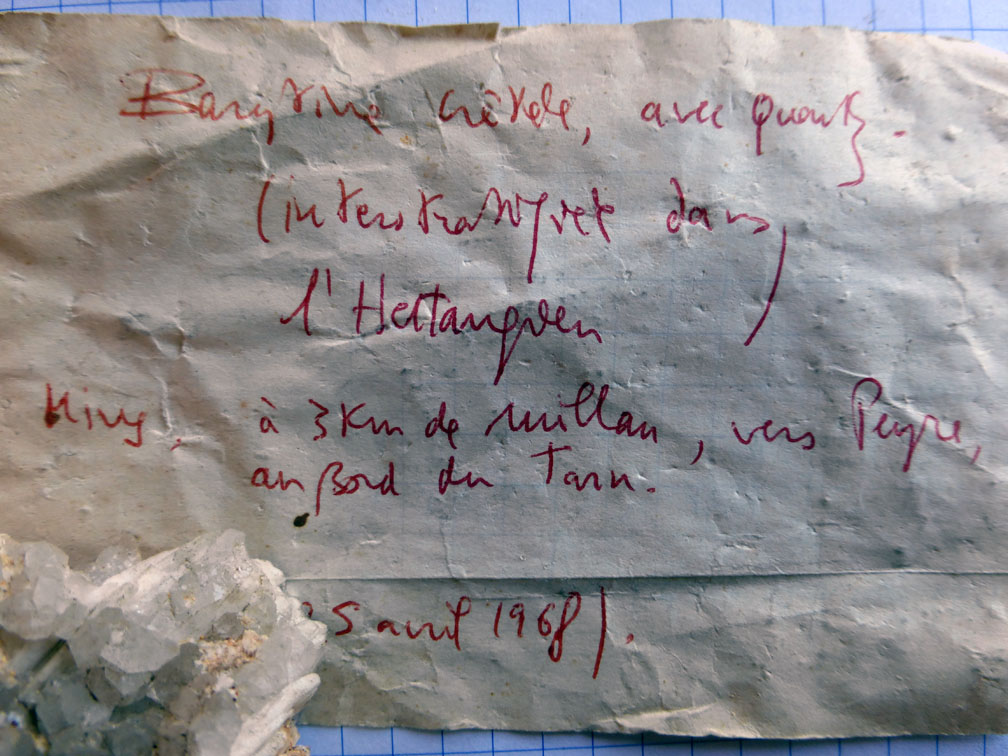 Barytine crêtée, avec Quartz.
(interstratifiée dans
l'Hettangien)
à 3 Km de Millau, vers Peyre,
au Bord du Tarn.
5 avril 1968).